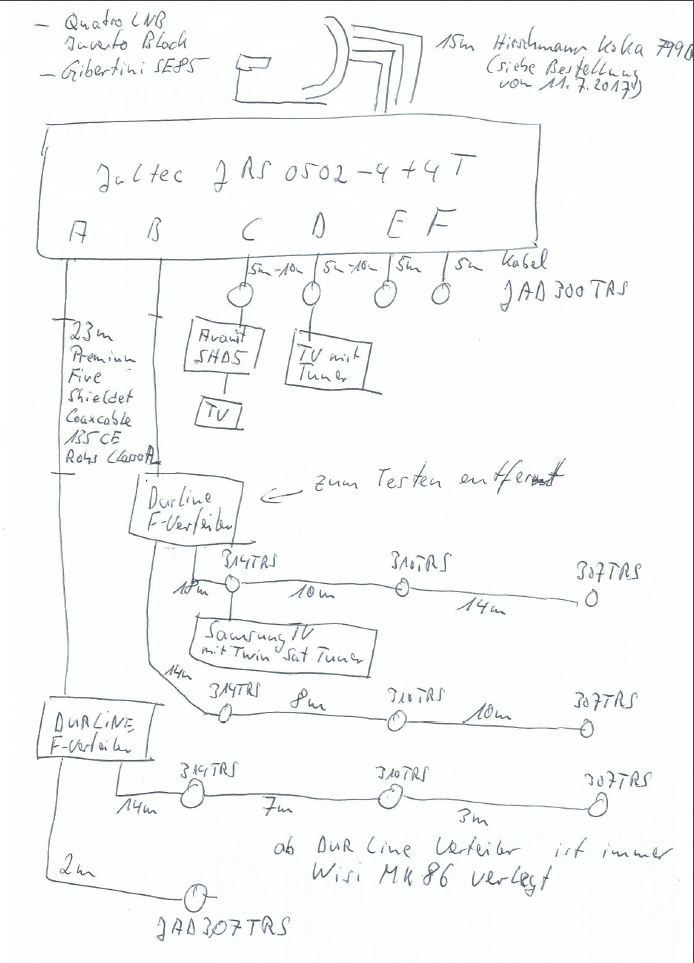 - Quatro LNB
Inverto Black
- Gibertini SE85
15m Hirschmann Koka 799B
(siehe Bestellung
vom 11.7.2017)
Jultec JRS 0502-4+4T
A B C D E F
5m-10m 5m-10m 5m 5m Kabel
JAD300TRS
23m
Premium
Five
Shieldet
Coaxcable
135 CE
Rohs ClassA
Avanit
SHD5
TV mit
Tuner
TV
DurLine
F-Verteiler
zum Testen entfernt
314TRS 310TRS 307TRS
10m 14m
Samsung TV
mit Twin Sat Tuner
14m
314TRS 310TRS 307TRS
8m 10m
DURLINE
F-Verteiler
314TRS 310TRS 307TRS
14m 7m 3m
ab DUR Line Verteiler ist immer
Wisi MK86 verlegt
2m
JAD307TRS